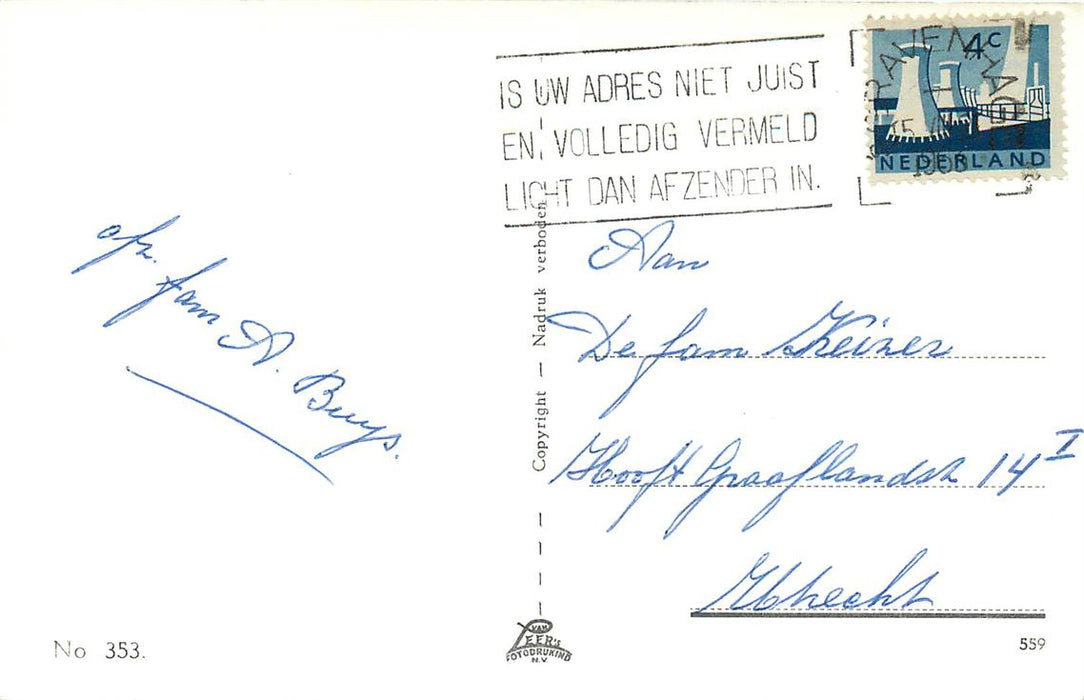 IS UW ADRES NIET JUIST
EN VOLLEDIG VERMELD
LICHT DAN AFZENDER IN.
4c
NEDERLAND
afz. fam A. Buys.
Aan
De fam Keizer
Hooft Graaflandstr 14 I
Utrecht
Copyright — Nadruk verboden
No 353.
VAN
LEER's
FOTODRUKIND
N.V.
559